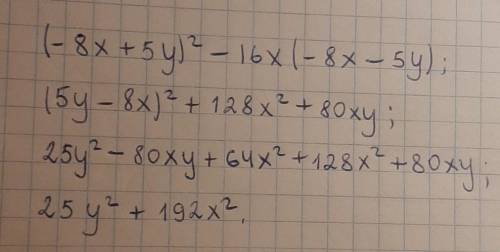 (-8x + 5y)² - 16x(-8x - 5y);
(5y - 8x)² + 128x² + 80xy;
25y² - 80xy + 64x² + 128x² + 80xy;
25y² + 192x².